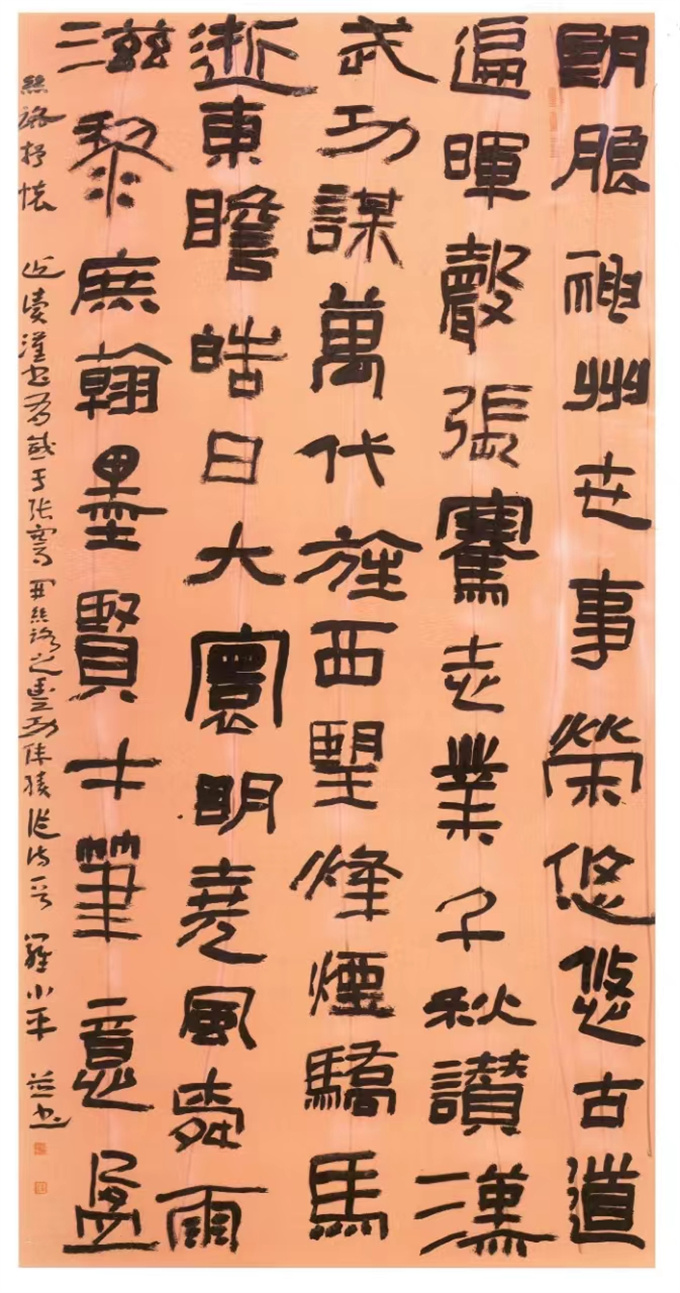 朙朖神州世事榮悠悠古道
遍暉聲張騫志業千秋讚漢
武功謀萬代旌西望烽煙驕馬
逝東瞻皓日大寰明堯風舜雨
滋黎庶翰墨賢士筆意盈
絲路抒懷 近讀漢書有感于张騫開絲路之豐功伟績作詩一首 羅小平 并书